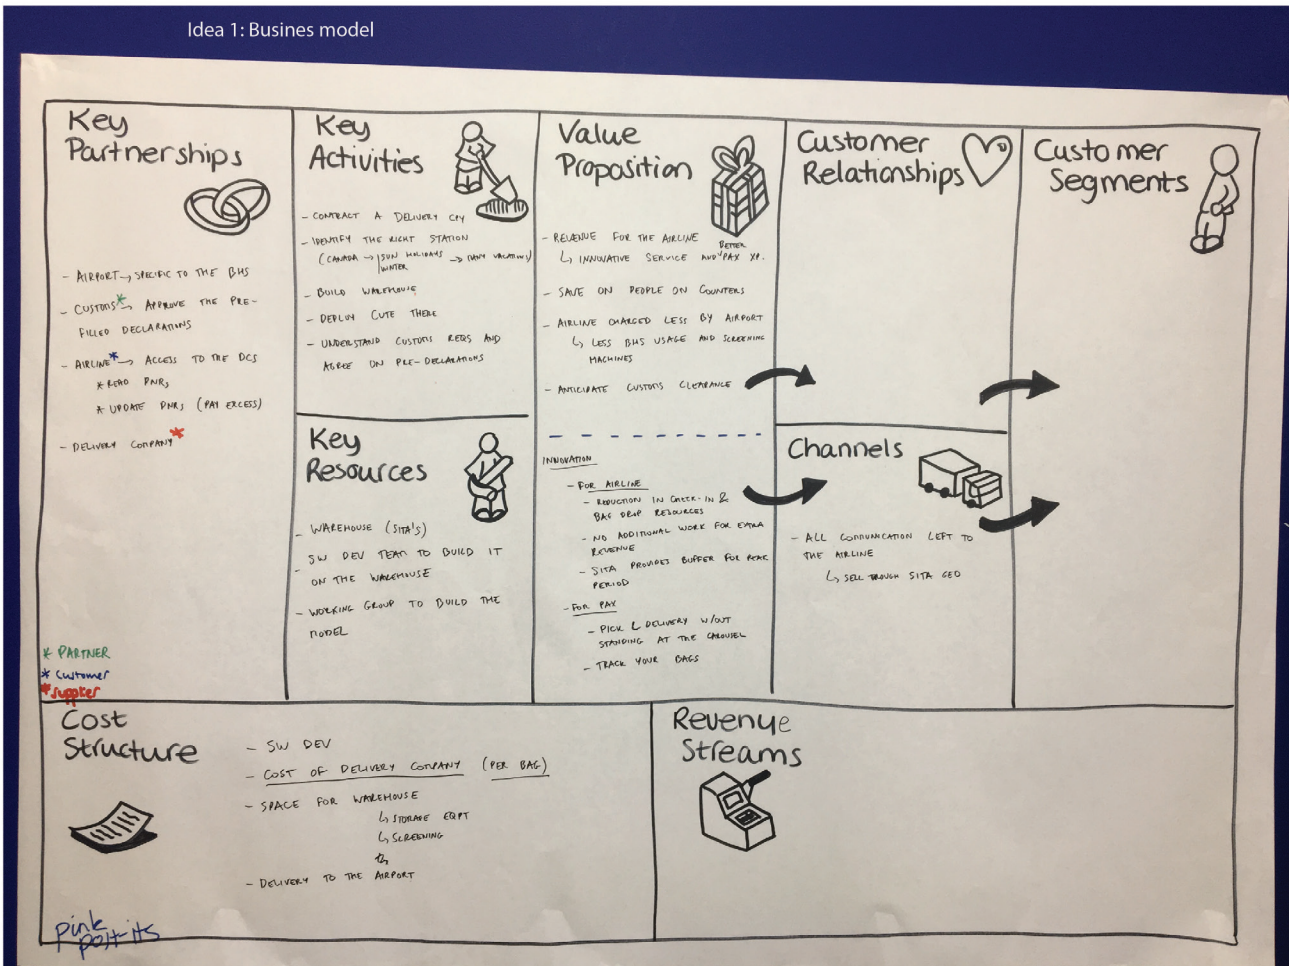 Idea 1: Busines model
Key
Partnerships
- AIRPORT → SPECIFIC TO THE BHS
- CUSTOMS* → APPROVE THE PRE-
FILLED DECLARATIONS
- AIRLINE* → ACCESS TO THE DCS
* READ PNRs
* UPDATE PNRs (PAY EXCESS)
- DELIVERY COMPANY*
* PARTNER
* Customer
* Supplier
Key
Activities
- CONTRACT A DELIVERY CPY
- IDENTIFY THE RIGHT STATION
(CANADA → SUN HOLIDAYS → VACATIONS)
/WINTER
- BUILD WAREHOUSE
- DEPLOY CUTE THERE
- UNDERSTAND CUSTOMS REQS AND
AGREE ON PRE-DECLARATIONS
Key
Resources
- WAREHOUSE (SITA'S)
- SW DEV TEAM TO BUILD IT
ON THE WAREHOUSE
- WORKING GROUP TO BUILD THE
MODEL
Value
Proposition
- REVENUE FOR THE AIRLINE
BETTER
↳ INNOVATIVE SERVICE AND PAX XP.
- SAVE ON PEOPLE ON COUNTERS
- AIRLINE CHARGED LESS BY AIRPORT
↳ LESS BHS USAGE AND SCREENING
MACHINES
- ANTICIPATE CUSTOMS CLEARANCE
INNOVATION
- FOR AIRLINE
- REDUCTION IN CHECK-IN &
BAG DROP RESOURCES
- NO ADDITIONAL WORK FOR EXTRA
REVENUE
- SITA PROVIDES BUFFER FOR PEAK
PERIOD
- FOR PAX
- PICK & DELIVERY W/OUT
STANDING AT THE CAROUSEL
- TRACK YOUR BAGS
Customer
Relationships
Channels
- ALL COMMUNICATION LEFT TO
THE AIRLINE
↳ SELL TROUGH SITA GEO
Customer
Segments
Cost
Structure
- SW DEV
- COST OF DELIVERY COMPANY (PER BAG)
- SPACE FOR WAREHOUSE
↳ STORAGE EQPT
↳ SCREENING
- DELIVERY TO THE AIRPORT
pink
post-its
Revenue
Streams